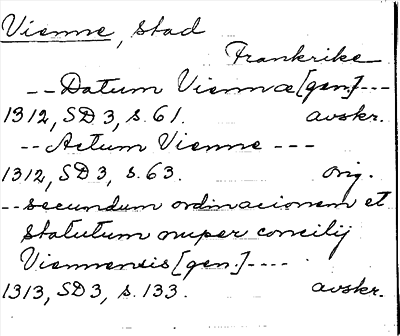 Vienne, stad
Frankrike
-- Datum Viennæ [gen.] ---
1312, SD 3, s. 61. avskr.
-- Actum Vienne ---
1312, SD 3, s. 63. orig.
-- secundum ordinacionem et
statutum nuper concilij
Viennensis [gen.] ----
1313, SD 3, s. 133. avskr.